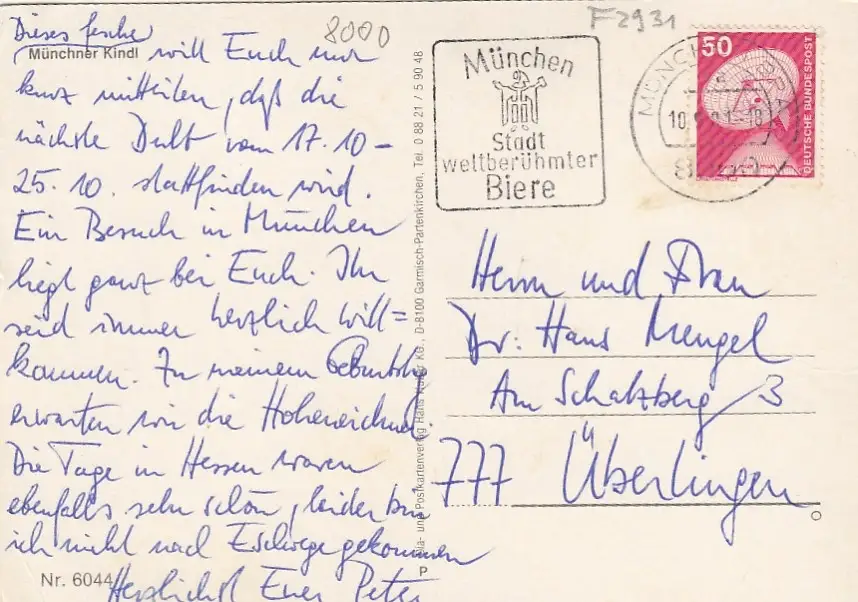 Dieses fesche
Münchner Kindl will Euch nur
kurz mitteilen, daß die
nächste Dult vom 17.10 –
25.10. stattfinden wird.
Ein Besuch in München
liegt ganz bei Euch. Ihr
seid immer herzlich will=
kommen. Zu meinem Geburtstag
erwarten wir die
Die Tage in Hessen waren
ebenfalls sehr schön, leider bin
ich nicht nach Eschwege gekommen
Nr. 6044 Herzlichst Euer Peter
8000
F2931
und Postkartenverlag Hans KG., D-8100 Garmisch-Partenkirchen, Tel. 0 88 21 / 5 90 48
P
München
Stadt
weltberühmter
Biere
MÜNCHEN
10.
50
DEUTSCHE BUNDESPOST
Herrn und Frau
Dr. Hans Mengel
Am Schatzberg 3
777 Überlingen